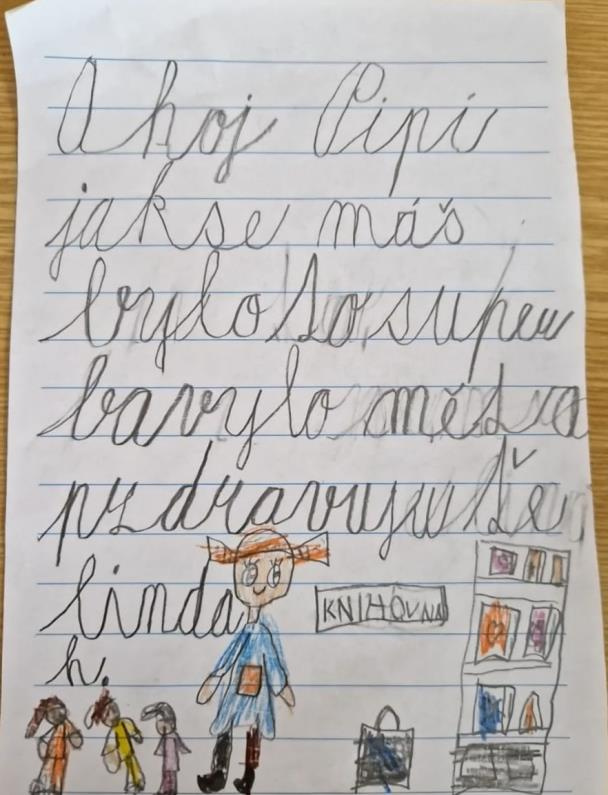 Ahoj Pipi
jakse máš
bylo to super
bavylo mě to a
pzdravuju tě
linda
KNIHOVNA
h.